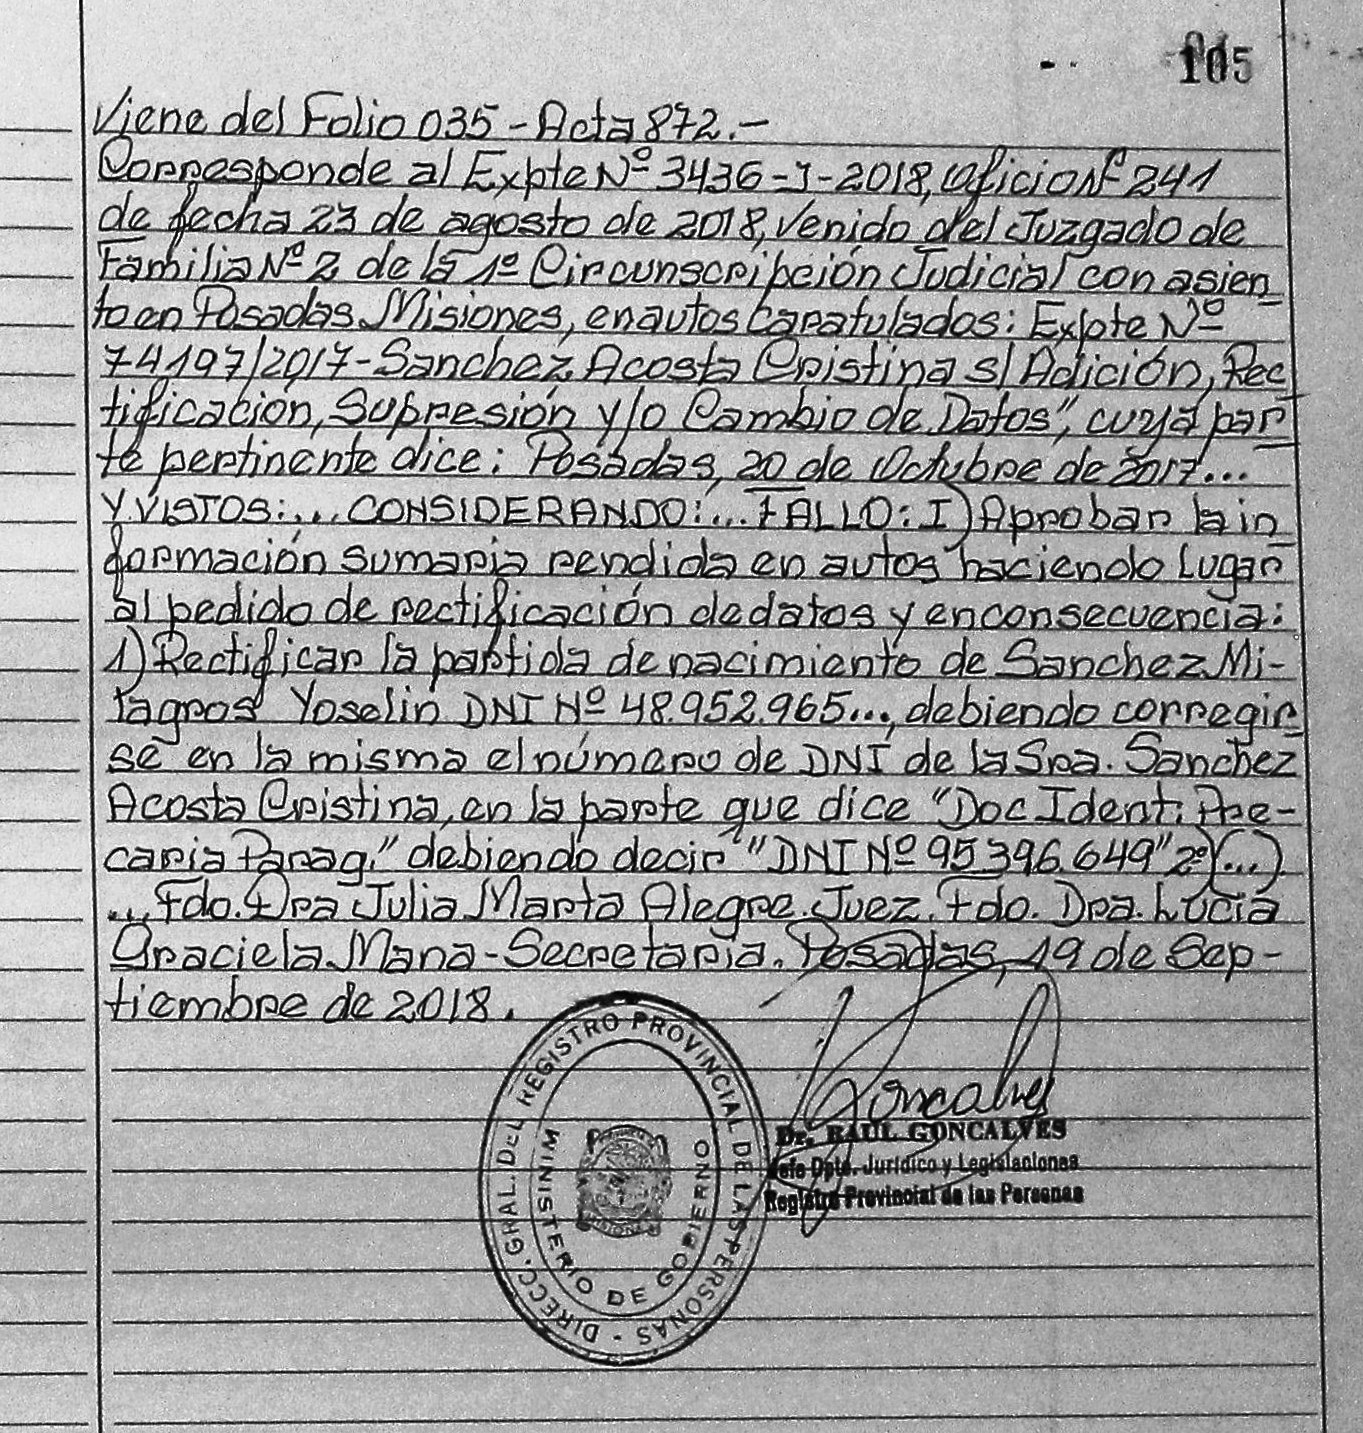 105
Viene del Folio 035 - Acta 872.-
Corresponde al Expte Nº 3436-J-2018, Oficio Nº 241
de fecha 23 de agosto de 2018, venido del Juzgado de
Familia Nº 2 de la 1º Circunscripción Judicial con asien
to en Posadas Misiones, en autos caratulados: Expte Nº
74197/2017-Sanchez Acosta Cristina s/ Adición, Rec
tificación, Supresión y/o Cambio de Datos", cuya par
te pertinente dice: Posadas, 20 de Octubre de 2017...
Y VISTOS:... CONSIDERANDO:... FALLO: I) Aprobar la in
formación sumaria rendida en autos haciendo lugar
al pedido de rectificación de datos y en consecuencia:
1) Rectificar la partida de nacimiento de Sanchez Mi-
lagros Yoselin DNI Nº 48.952.965..., debiendo corregir
se en la misma el número de DNI de la Sra. Sanchez
Acosta Cristina, en la parte que dice "Doc Ident. Pre-
caria Parag." debiendo decir "DNI Nº 95 396.649" 2º)(...).
... Fdo. Dra Julia Marta Alegre. Juez. Fdo. Dra. Lucia
Graciela Mana - Secretaria. Posadas, 19 de Sep-
tiembre de 2018.
DIRECC. GRAL. DEL REGISTRO PROVINCIAL DE LAS PERSONAS -
MINISTERIO DE GOBIERNO
MISIONES
Goncalves
Dr. RAUL GONCALVES
Jefe Dpto. Jurídico y Legislaciones
Registro Provincial de las Personas